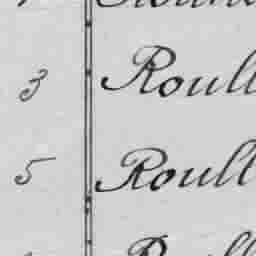 3 Roull
5 Roull